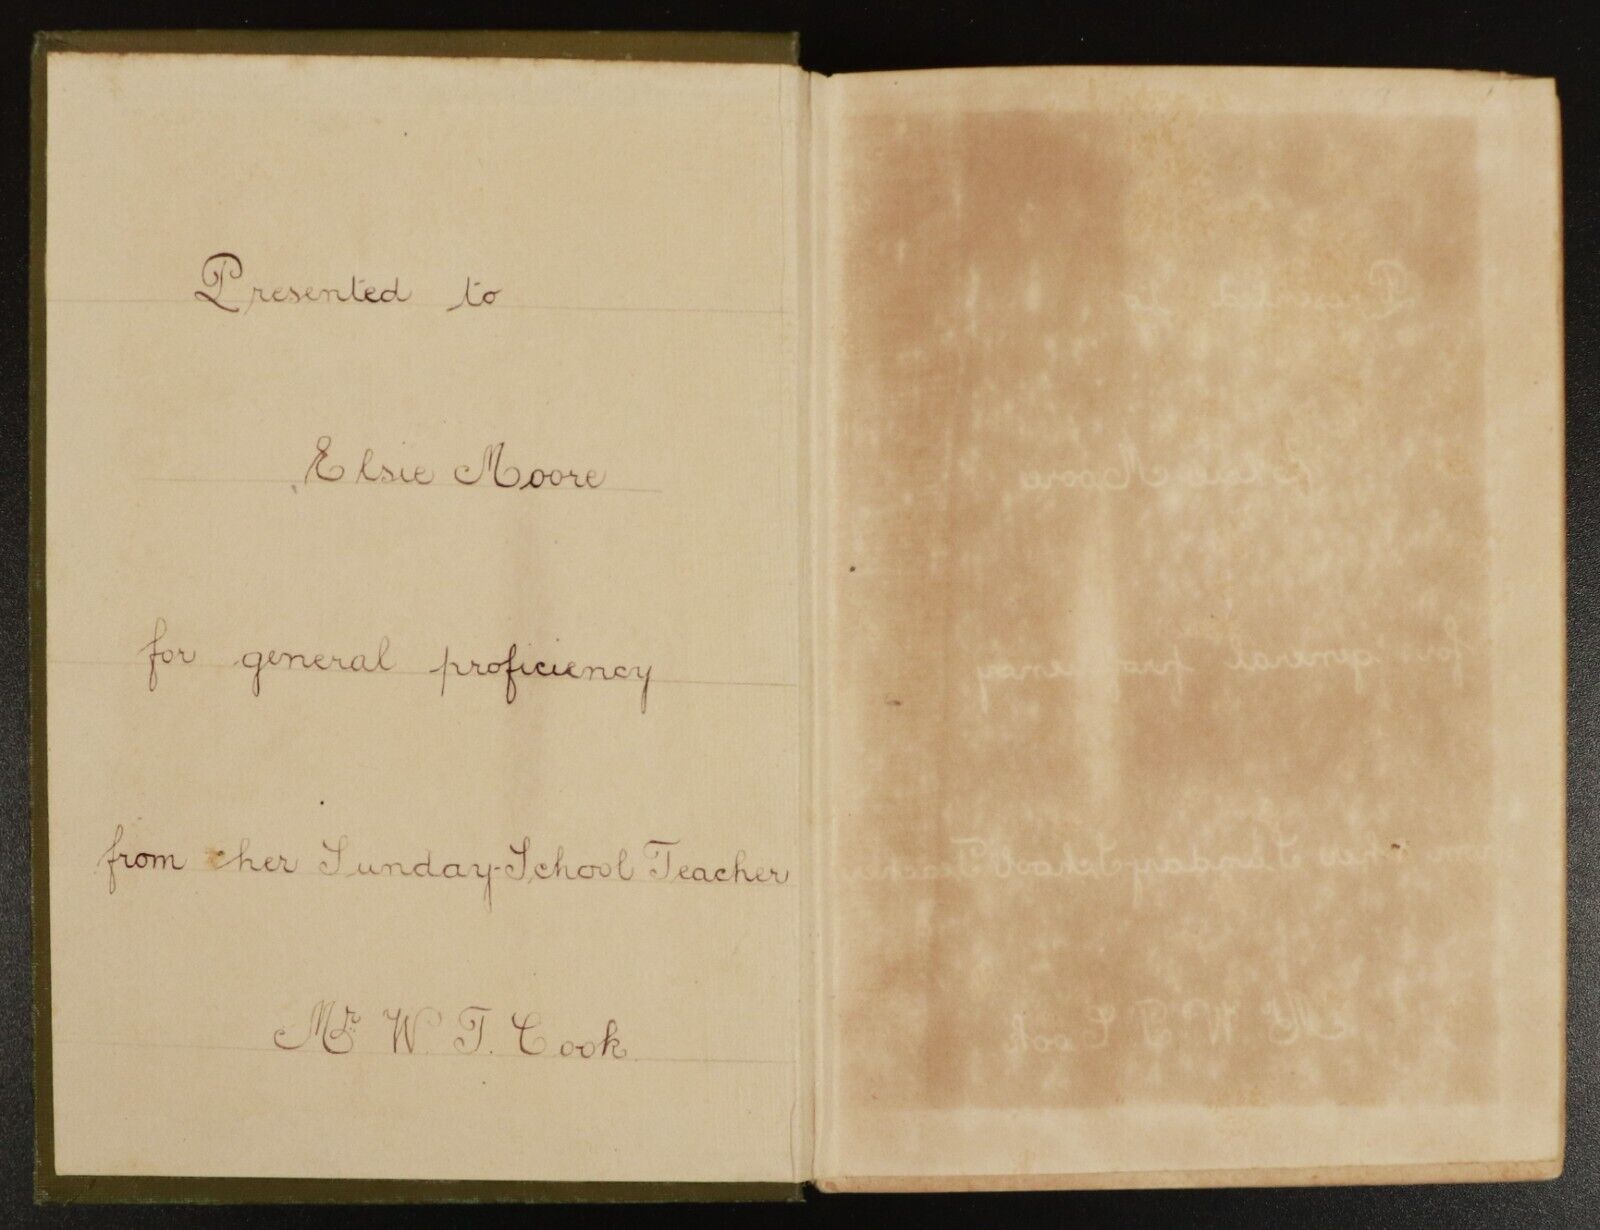 Presented to
Elsie Moore
for general proficiency
from her Sunday-School Teacher
Mr. W. T. Cook.